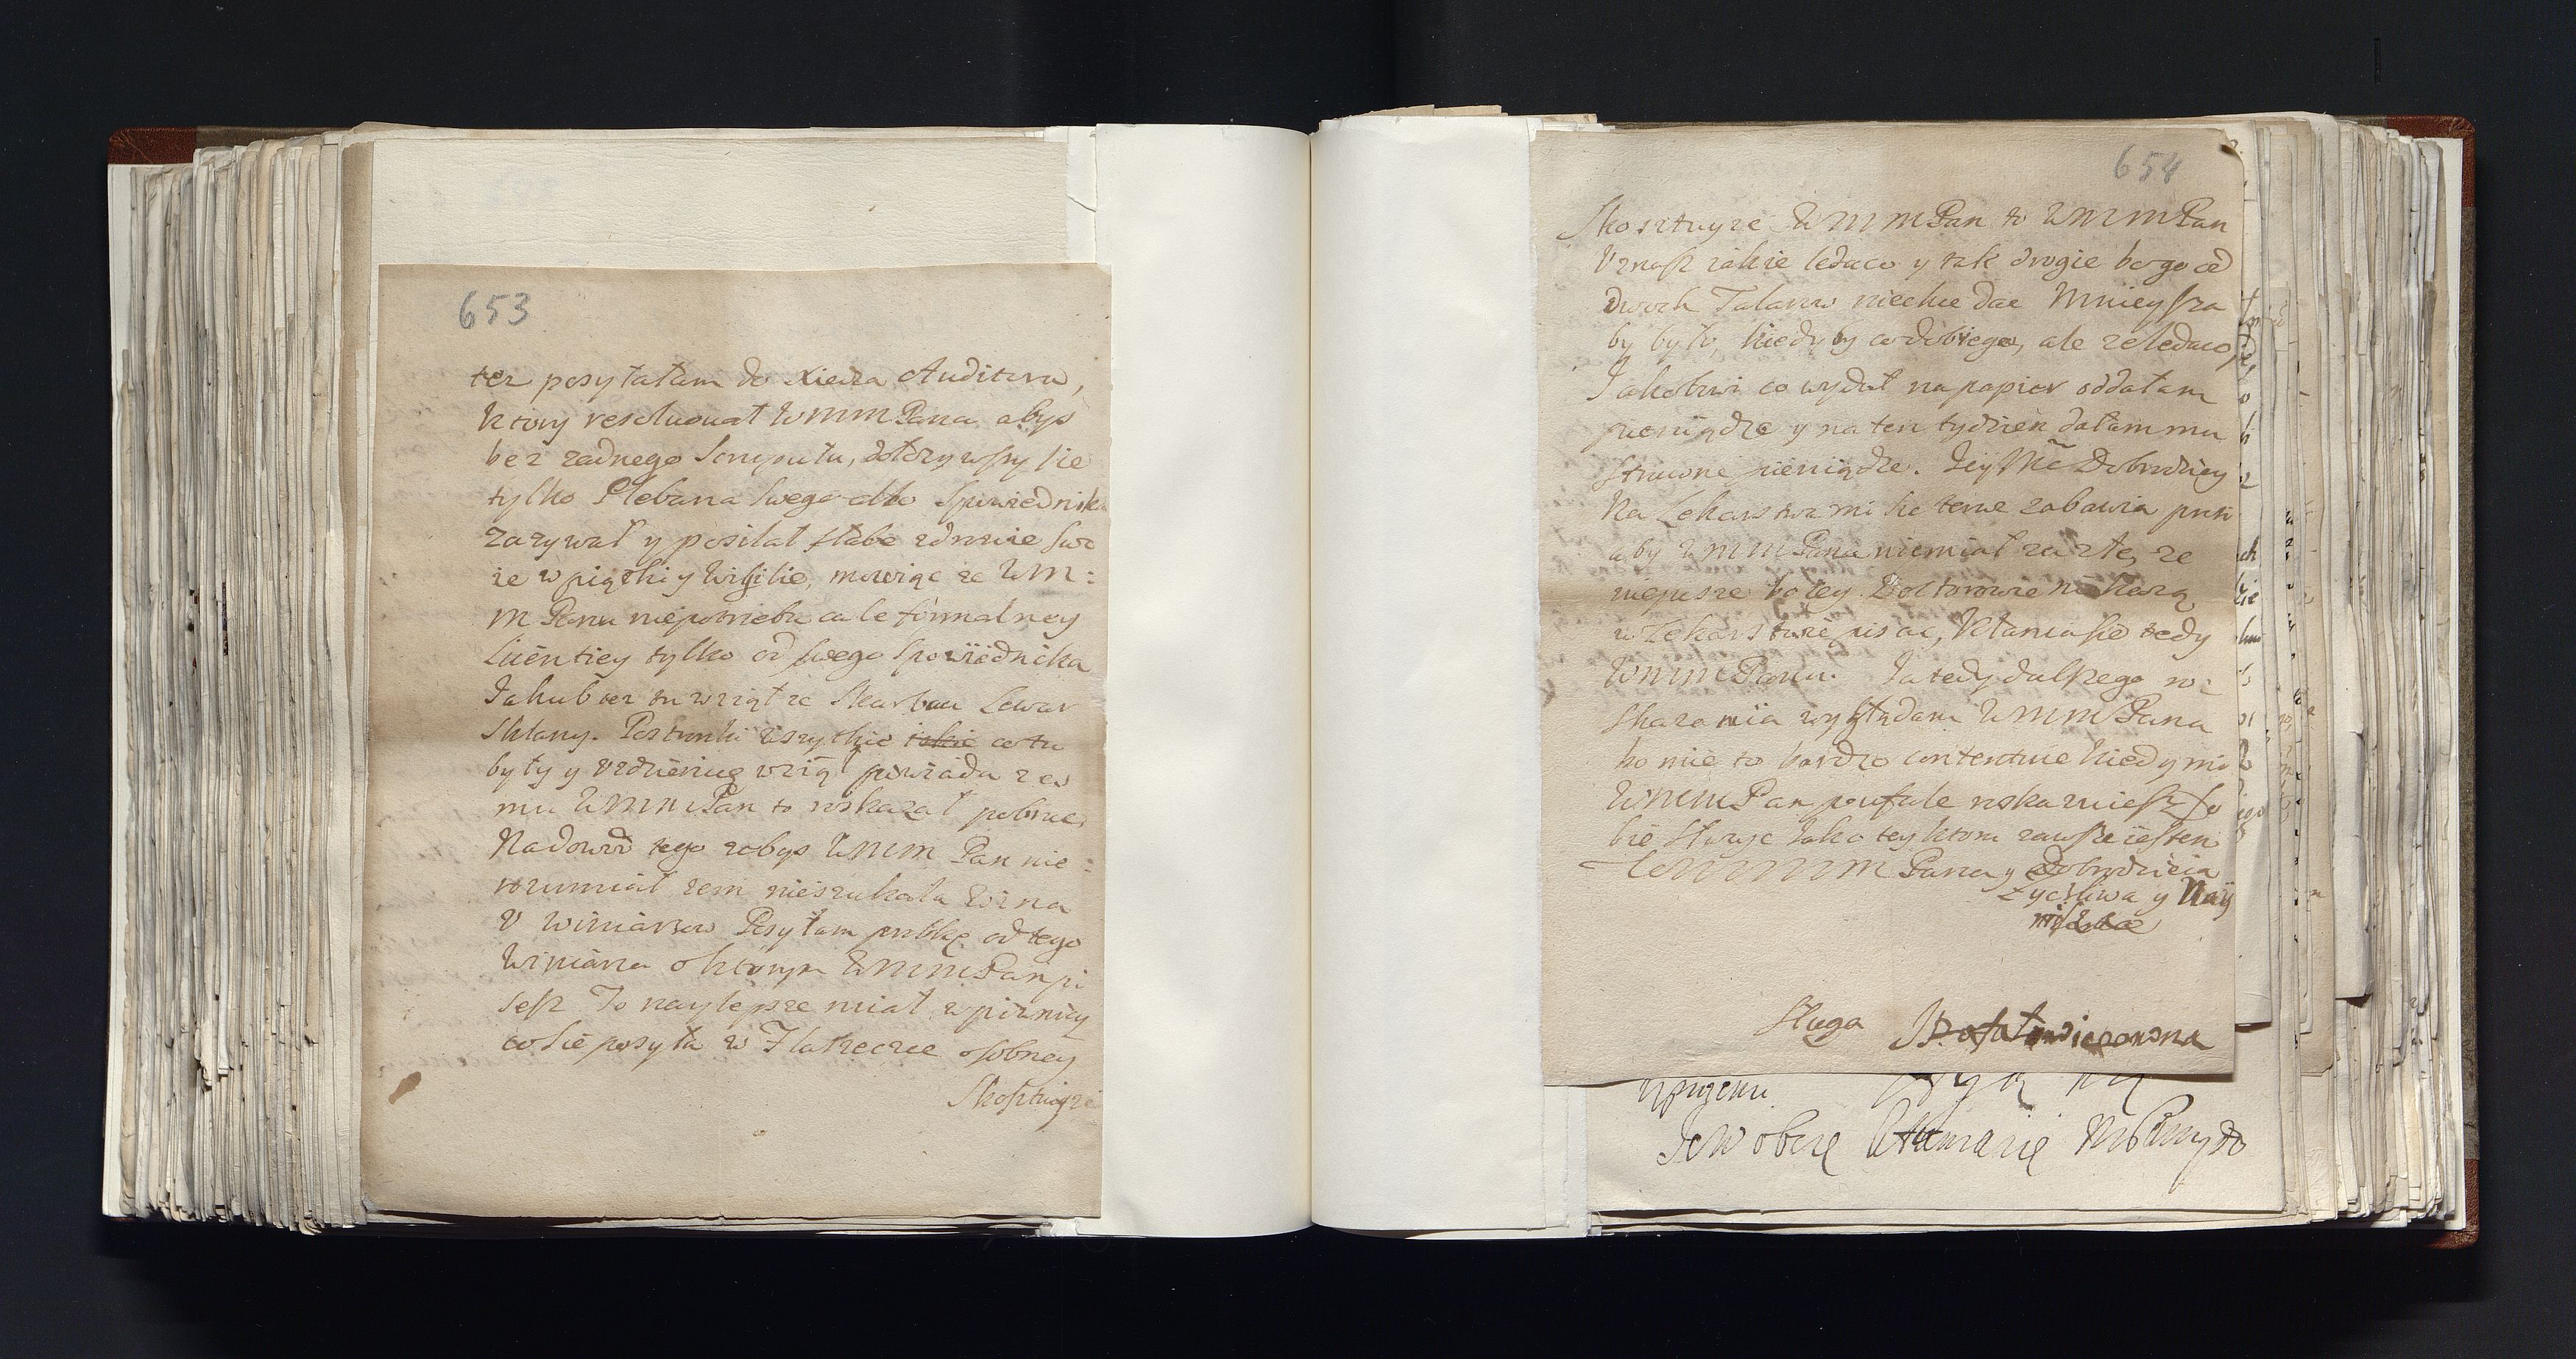 653
tez posyłałam do Xiedza Auditora,
ktory resoluował WMM Pana abys
bez zadnego scruputu, dołozywszy sie
tylko Plebana swego albo Spowiednika
zazywał y posilał słabe zdrowie swo
ie w piątki y Wigilie, mowiąc ze WM:
M Panu niepotrzeba cale formalney
licentiey tylko od swego Spowiednika
Jakub tez tu wziął ze Skarbcu Lewar
Sklany. Postronki wszytkie co tu
były y vzdzienicę wziął powiada ze
mu WMM Pan to wskazał pobrac
Na dowod tego zebys WMM Pan nie:
rozumiał zem nieszukała wina
V Winiarzow Posyłam probkę od tego
Winiarza o ktorym WMM Pan pi
sesz To naylepsze miał w piwnicy
co sie posyła w Flaszecce osobney
Skosztuyze
654
Skosztuyze WMM Pan to WMM Pan
Vznasz iakie ledaco y tak drogie bo go od
dwoch Talarow niechce dac Mnieysza
by było, kiedy by co dobrego, ale ze ledaco
Jakobowi co wydał na papier oddałam
pieniądze y na ten tydzien dałam mu
strawne pieniądze. Jey Mc Dobrodziey
Ka Lekarstwami sie teraz zabawia
aby WMM Pana niemiał za złe, ze
niepisze bo tey Doctorowie nie karzą
w Lekarstwie pisac, Kłania sie tedy
WMM Panu. Ja tedy dalszego ro:
skazania wyglądam WMM Pana
bo mie to bardzo contentuie kiedy mi
WMM Pan poufale roskazuiesz so
bie słuzyc iako tey ktora zawsze iestem
WMMM Pana y Dobrodzieia
zyczliwa y Nay
nizsza
Sługa